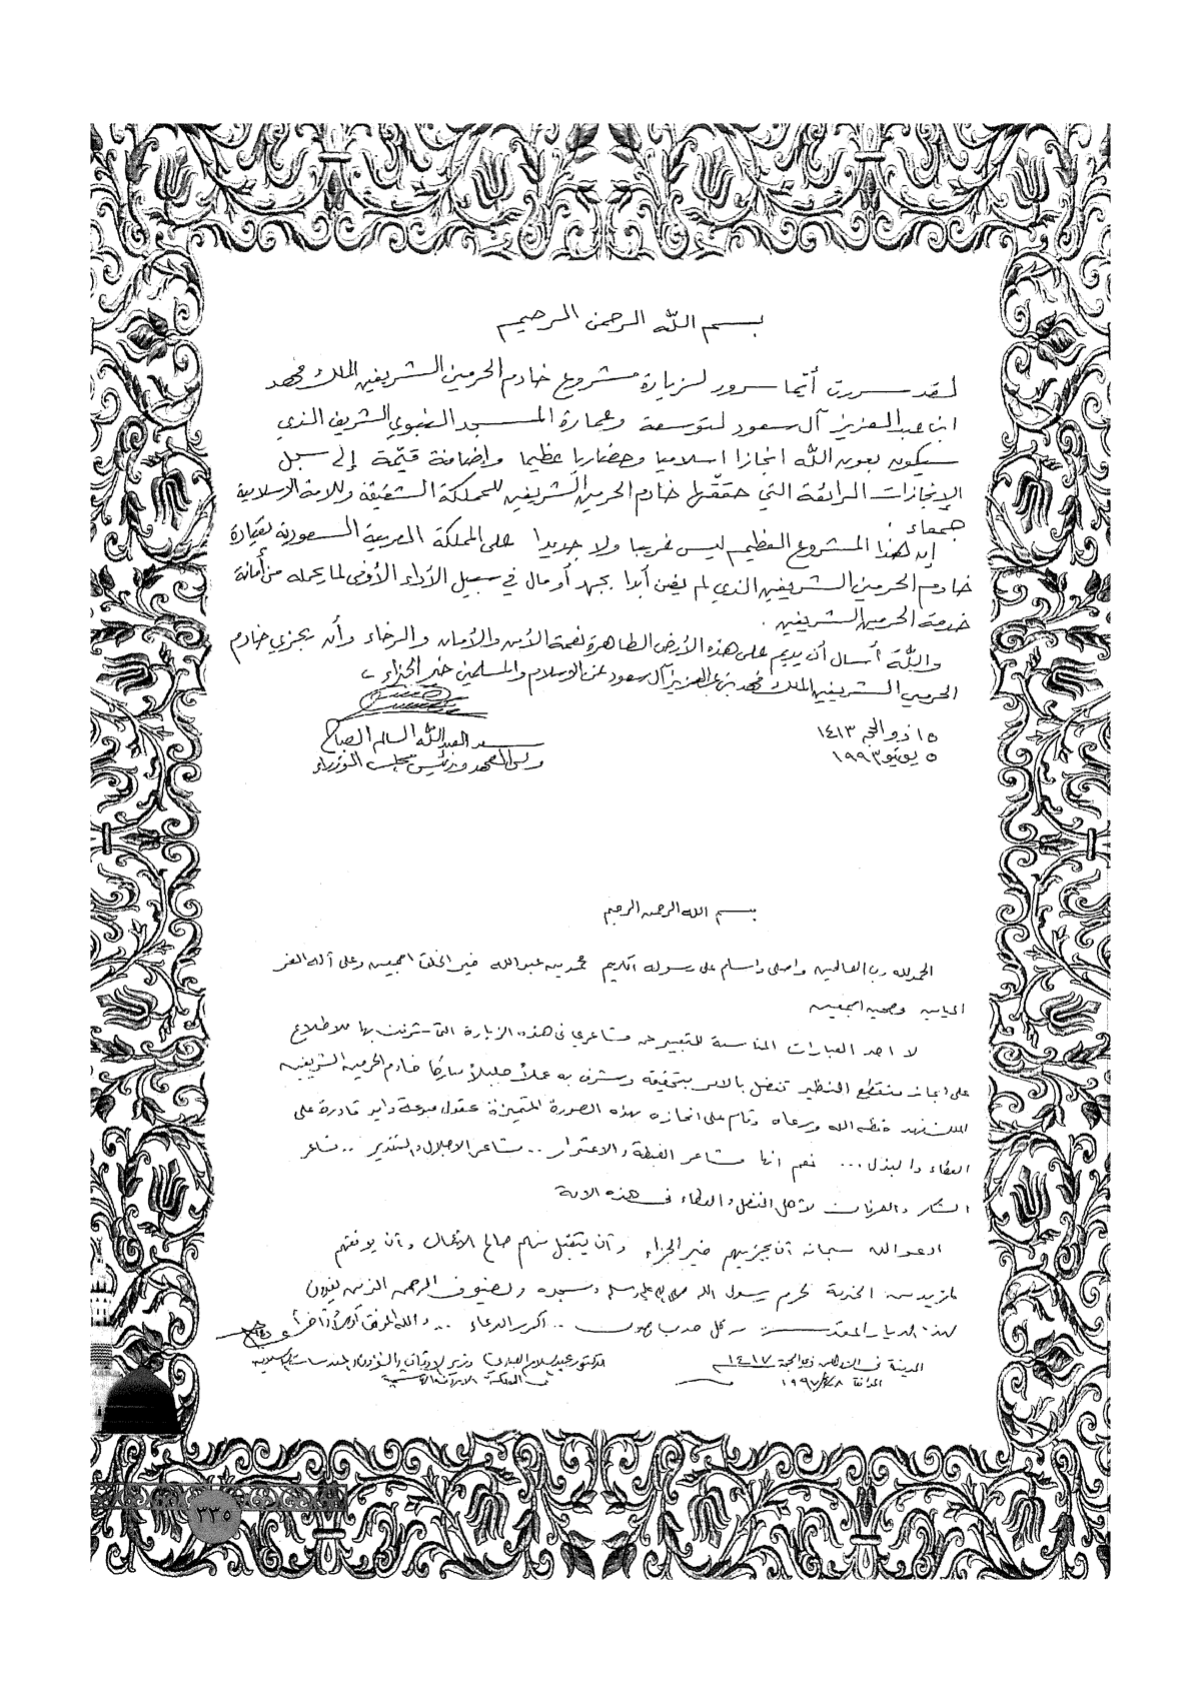 بسم الله الرحمن الرحيم
لقد سررت أيما سرور لزيارة مشروع خادم الحرمين الشريفين الملك فهد
ابن عبد العزيز آل سعود لتوسعة وعمارة المسجد النبوي الشريف الذي
سيكون بعون الله انجازا اسلاميا وحضاريا عظيما وإضافة قيمة إلى سجل
الإنجازات الرائعة التي حققها خادم الحرمين الشريفين للمملكة الشقيقة وللامة الإسلامية
جمعاء .
إن هذا المشروع العظيم ليس غريبا ولا جديدا على المملكة العربية السعودية بقيادة
خادم الحرمين الشريفين الذي لم يضن أبدا بجهد أو مال في سبيل الأداء الأوفى لما يحمله من أمانة
خدمة الحرمين الشريفين .
والله أسال أن يديم على هذه الأرض الطاهرة نعمة الأمن والأمان والرخاء وأن يجزي خادم
الحرمين الشريفين الملك فهد بن عبد العزيز آل سعود عن الإسلام والمسلمين خير الجزاء ،
١٥ ذو الحجة ١٤١٣
٥ يونيو ١٩٩٣
سعد العبدالله السالم الصباح
ولي العهد ورئيس مجلس الوزراء
بسم الله الرحمن الرحيم
الحمد لله رب العالمين واصلي واسلم على رسوله الكريم محمد بن عبد الله خير الخلق اجمعين وعلى آله الغر
الميامين وصحبه اجمعين
لا اجد العبارات المناسبة للتعبير عن مشاعري في هذه الزيارة التي شرفت بها للاطلاع
على انجاز منقطع النظير تفضل بالامر بتحقيقه وتشرف به عملاً جليلاً مباركا خادم الحرمين الشريفين
الملك فهد حفظه الله ورعاه وقام على انجازه بهذه الصورة المتميزة عقول مبدعة وايد قادرة على
العطاء والبذل ... نعم انها مشاعر الغبطة والاعتزاز .. مشاعر الاجلال والتقدير .. مشاعر
الشكر والعرفان لأهل الفضل والعطاء في هذه الامة
ادعو الله سبحانه أن يجزيهم خير الجزاء وأن يتقبل منهم صالح الأعمال وأن يوفقهم
لمزيد من الخدمة لحرم رسول الله صلى الله عليه وسلم ومسجده ولضيوف الرحمن الذين يفدون
لهذه الديار المقدسة من كل حدب وصوب .. اكرر الدعاء .. والله الموفق أولاً وآخراً
المدينة في ذو الحجة ١٤١٧
الموافق ١٩٩٧
الدكتور عبدالسلام العبادي وزير الأوقاف والشؤون والمقدسات الإسلامية
في المملكة الاردنية الهاشمية
٢٣٥